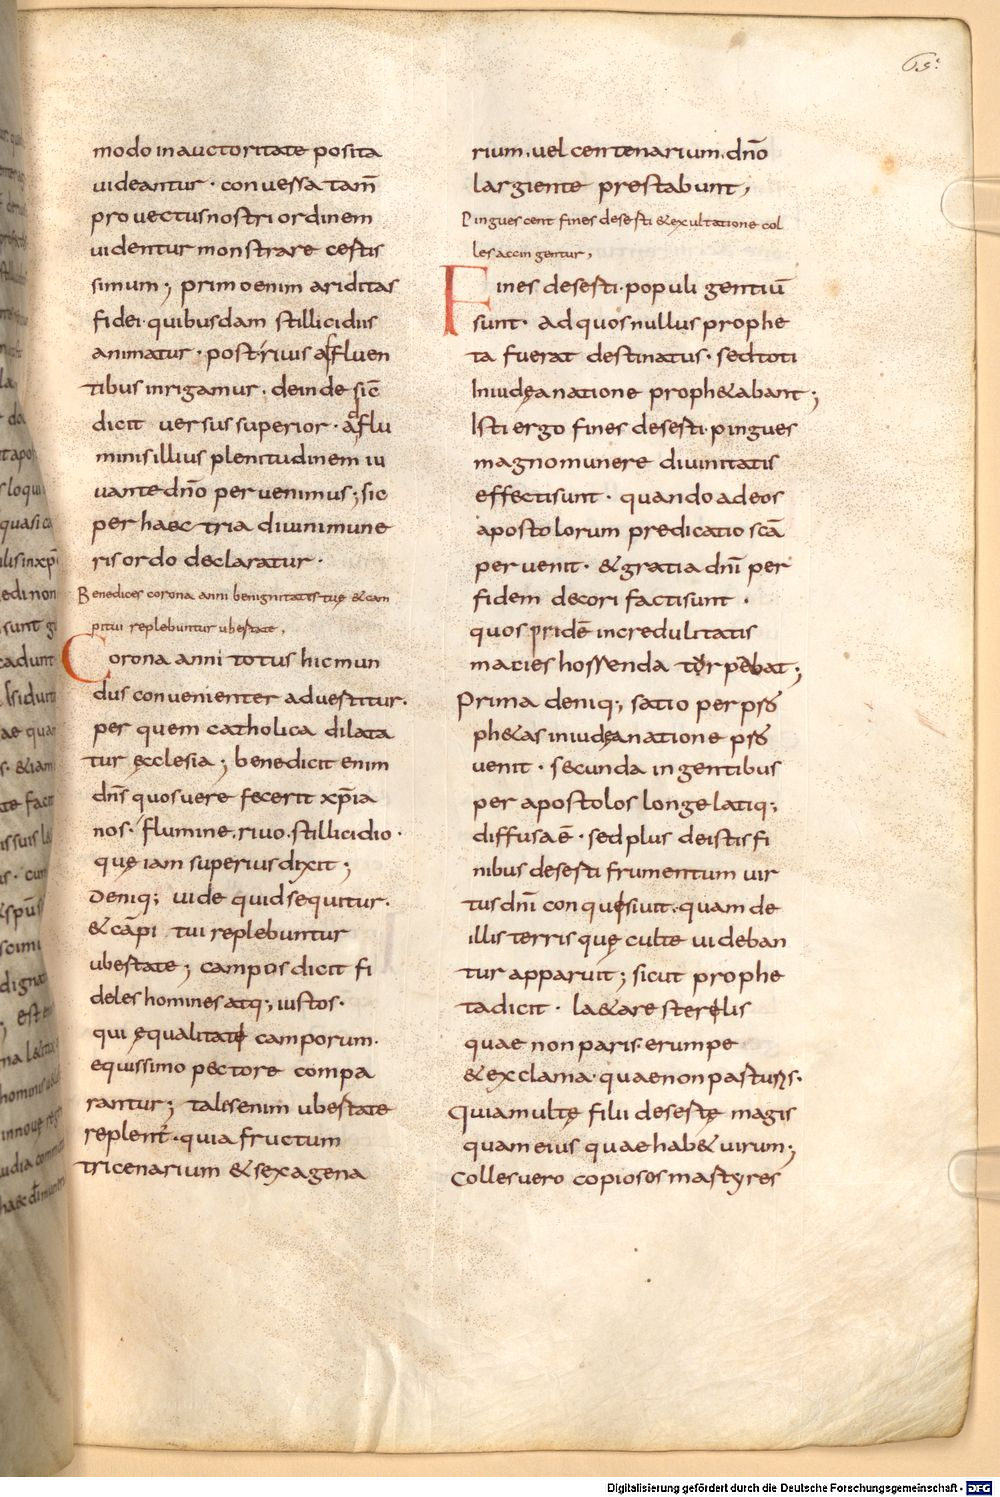 65.
modo in auctoritate posita
uideantur · conuessa tam̄
prouectus nostri ordinem
uidentur monstrare certis
simum; primo enim ariditas
fidei · quibusdam stillicidiis
animatur · post riuis affluen
tibus inrigamur · deinde sic̄
dicit uersus superior · a flu
minis illius plenitudinem iu
uante dn̄o peruenimus; sic
per haec tria diuini mune
ris ordo declaratur ·
Benedices corona anni benignitatis tuę & cam
pi tui replebuntur ubertate,
Corona anni totus hic mun
dus conuenienter aduertitur.
per quem catholica dilata
tur ęcclesia; benedicit enim
dn̄s quos uere fecerit xp̄ia
nos · flumine, riuo, stillicidio ·
quę iam superius dixit;
Deniq; uide quid sequitur ·
& cāpi tui replebuntur
ubertate; campos dicit fi
deles homines atq; iustos ·
qui ęqualitate camporum ·
equissimo pectore compa
rantur; tales enim ubertate
replent · quia fructum
tricenarium & sexagena
rium, uel centenarium, dn̄o
largiente prestabunt,
Pinguescent fines deserti & exultatione col
les accingentur,
Fines deserti · populi gentiū
sunt · ad quos nullus prophe
ta fuerat destinatus · sed toti
In iudęa natione proph&abant;
Isti ergo fines deserti · pingues
magno munere diuinitatis
effecti sunt · quando ad eos
apostolorum predicatio scā
peruenit · & gratia dn̄i per
fidem decori facti sunt ·
quos pridē incredulitatis
macies horrenda torpebat;
Prima deniq; satio per pro
ph&as in iudęa natione pro
uenit · secunda in gentibus
per apostolos longe latiq;
diffusa ē · sed plus de istis fi
nibus deserti frumentum uir
tus dn̄i conquesiuit · quam de
illis terris quę culte uideban
tur apparuit; sicut prophe
ta dicit · la&are sterelis
quae non paris erumpe
& exclama · quae non parturis ·
Quia multę filii desertę magis
quam eius quae hab& uirum;
Colles uero copiosos martyres
Digitalisierung gefördert durch die Deutsche Forschungsgemeinschaft - DFG